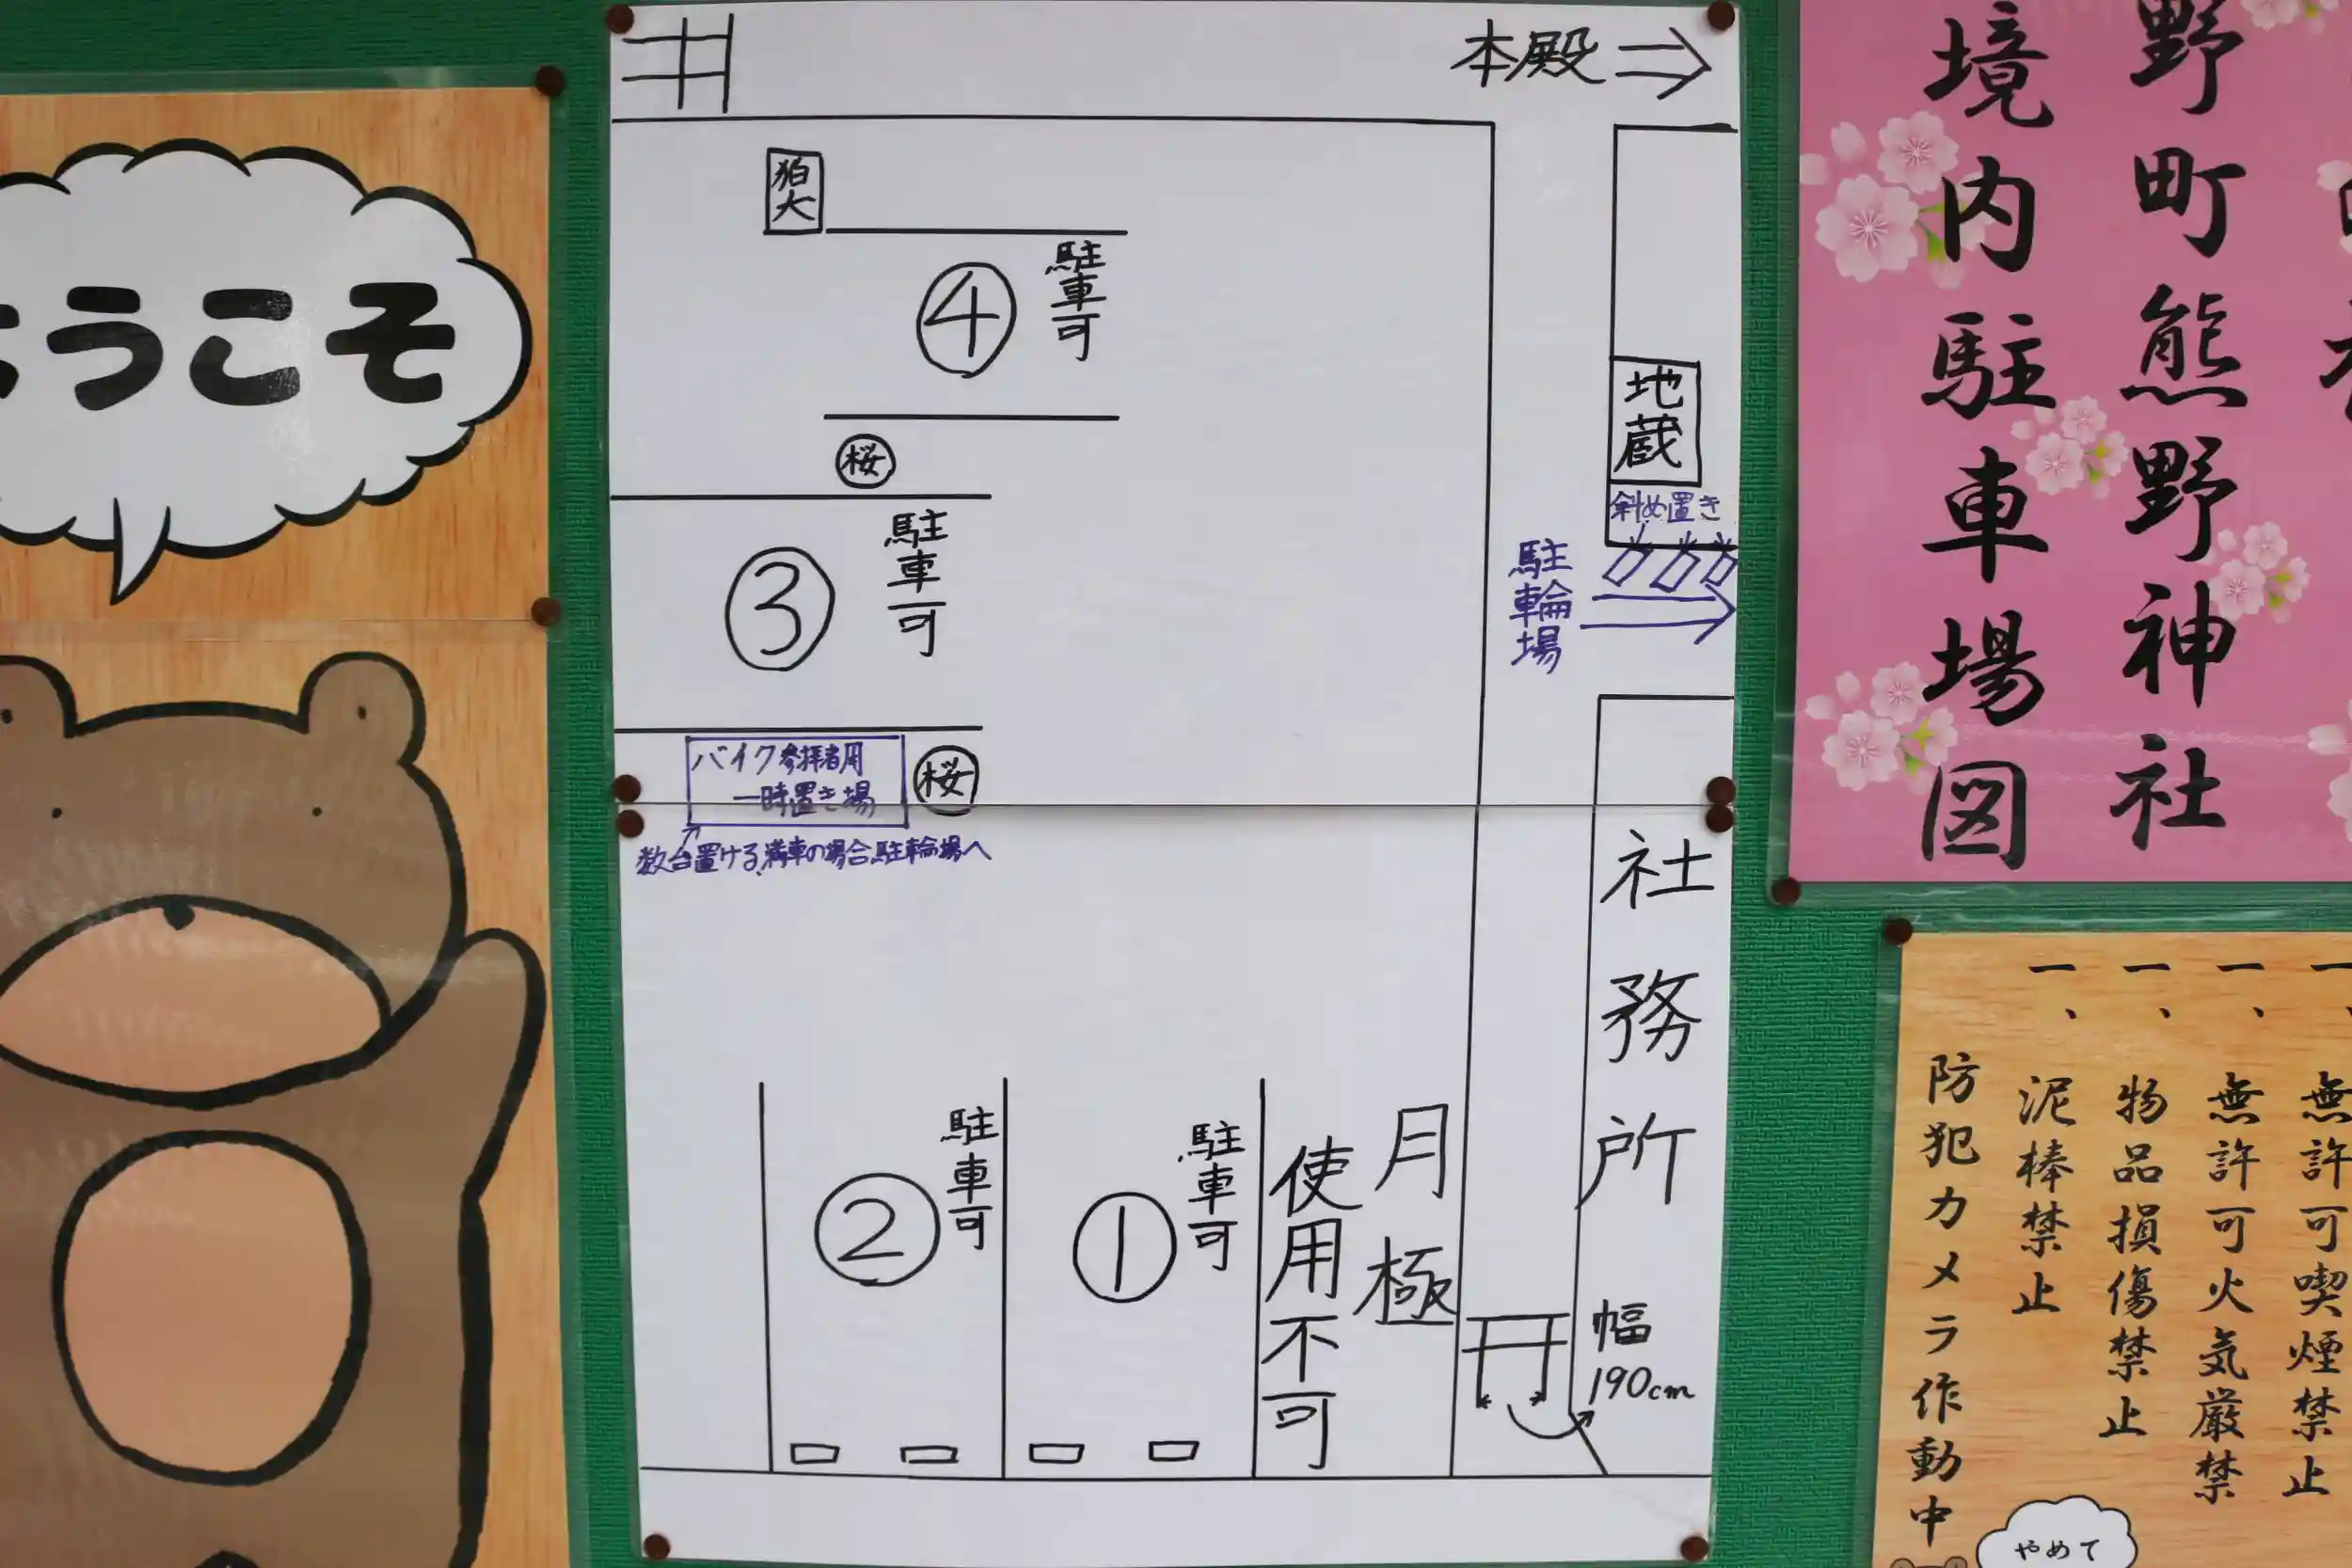 ようこそ
本殿
狛犬
④ 駐車可
桜
③ 駐車可
バイク参拝者用
一時置き場
桜
数台置ける。満車の場合、駐輪場へ
② 駐車可
① 駐車可
月極
使用不可
地蔵
斜め置き
駐輪場
社務所
幅
190cm
野町熊野神社
境内駐車場図
無許可喫煙禁止
一、無許可火気厳禁
一、物品損傷禁止
一、泥棒禁止
防犯カメラ作動中
やめて